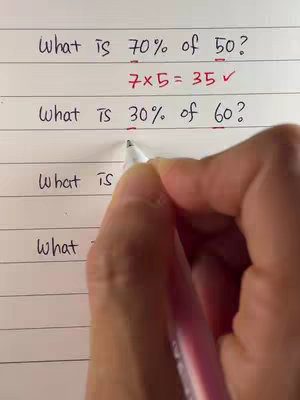 What is 70% of 50?
7×5 = 35 ✓
What is 30% of 60?
What is
What